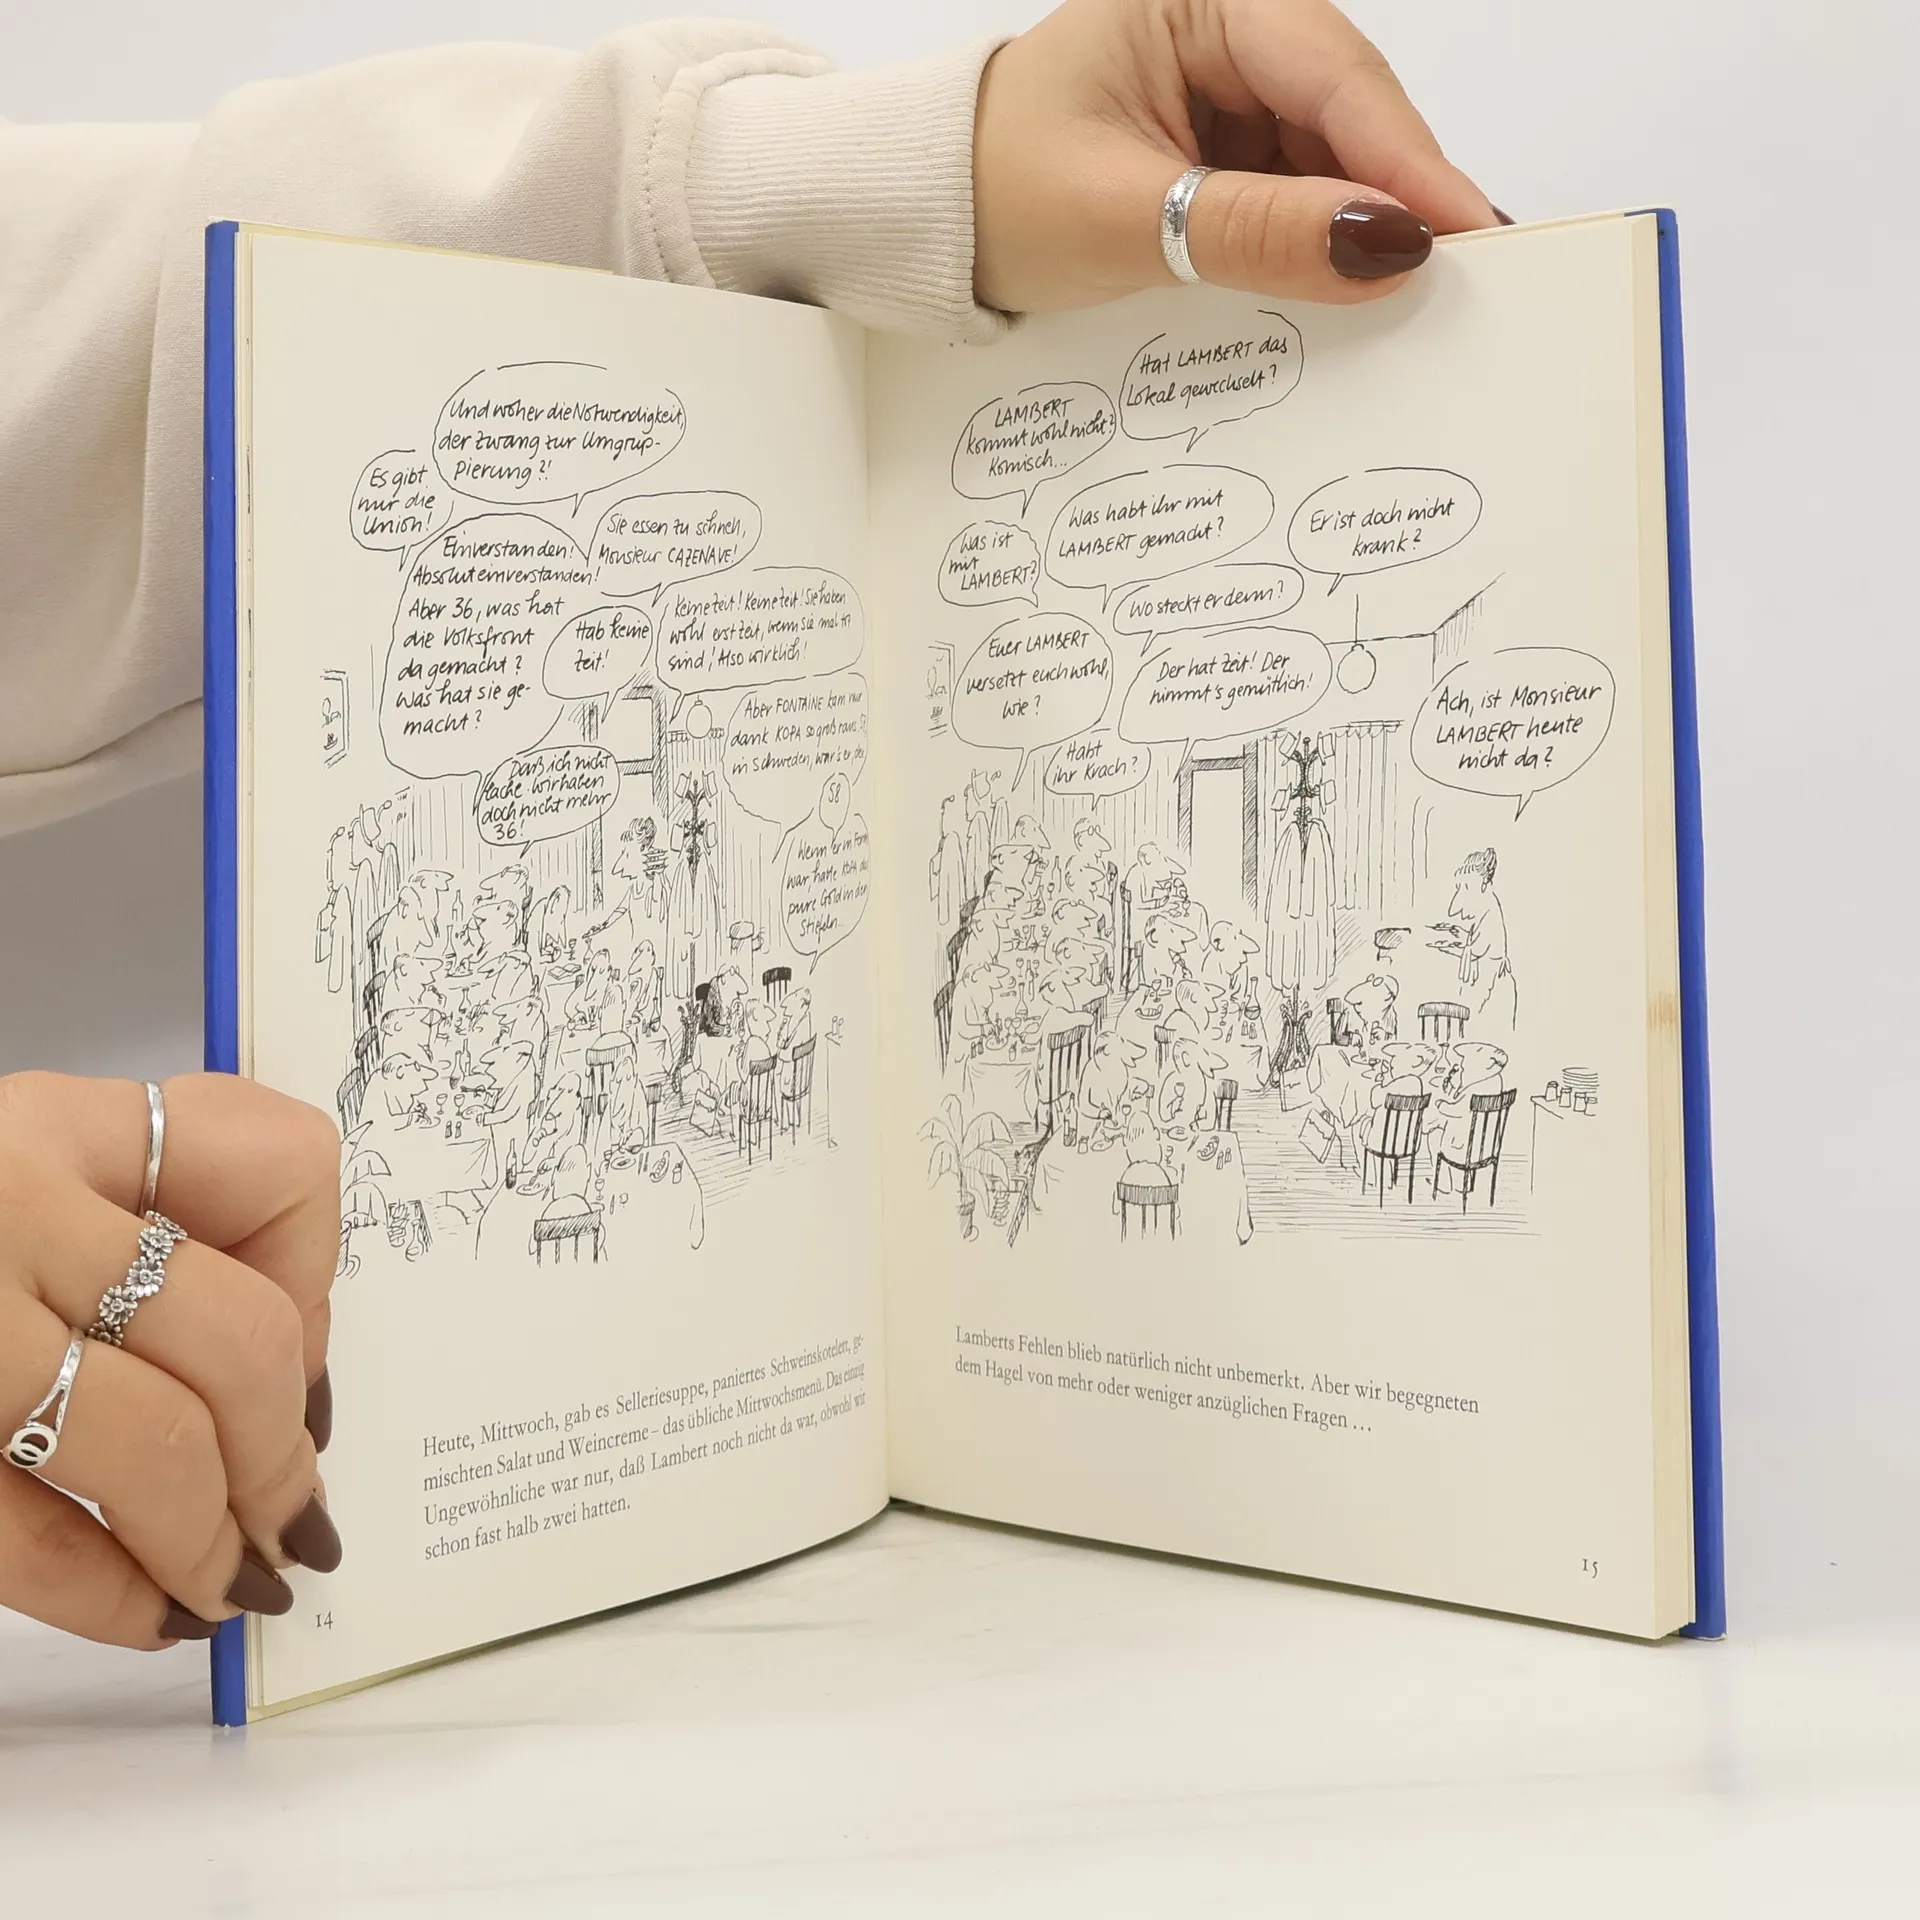 Und woher die Notwendigkeit,
der Zwang zur Umgrup-
pierung?!
Es gibt
nur die
Union!
Einverstanden!
Absolut einverstanden!
Aber 36, was hat
die Volksfront
da gemacht?
Was hat sie ge-
macht?
Sie essen zu schnell,
Monsieur CAZENAVE!
Hab keine
Zeit!
Keine Zeit! Keine Zeit! Sie haben
wohl erst Zeit, wenn Sie mal tot
sind! Also wirklich!
Daß ich nicht
lache. Wir haben
doch nicht mehr
36!
Aber FONTAINE kam nur
dank KOPA so groß raus.
in Schweden, war's er, der
58
Wenn er in Form
war, hatte KOPA das
pure Gold in den
Stiefeln...
Heute, Mittwoch, gab es Selleriesuppe, paniertes Schweinskotelett, ge-
mischten Salat und Weincreme – das übliche Mittwochsmenü. Das einzig
Ungewöhnliche war nur, daß Lambert noch nicht da war, obwohl wir
schon fast halb zwei hatten.
14
Hat LAMBERT das
Lokal gewechselt?
LAMBERT
kommt wohl nicht?
Komisch...
Was habt ihr mit
LAMBERT gemacht?
Er ist doch nicht
krank?
Was ist
mit
LAMBERT?
Wo steckt er denn?
Euer LAMBERT
versetzt euch wohl,
wie?
Der hat Zeit! Der
nimmt's gemütlich!
Habt
ihr Krach?
Ach, ist Monsieur
LAMBERT heute
nicht da?
Lamberts Fehlen blieb natürlich nicht unbemerkt. Aber wir begegneten
dem Hagel von mehr oder weniger anzüglichen Fragen ...
15